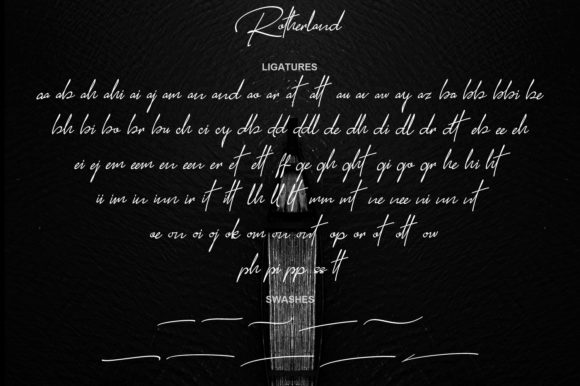 Rotherland
LIGATURES
aa ab ah ahi ai aj am an and ao ar at att au av aw ay az ba bb bbi be
bh bi bo br bu ch ci cy db dd ddl de dh di dl dr dt eb ee eh
ei ej em eem en een er et ett ff ge gh ght gi go gr he hi ht
ii im in inn ir it itt lh ll lt mm mt ne nee ni nn nt
oe oi oj ok om on ont op or ot ott ow
ph pi pp ss tt
SWASHES